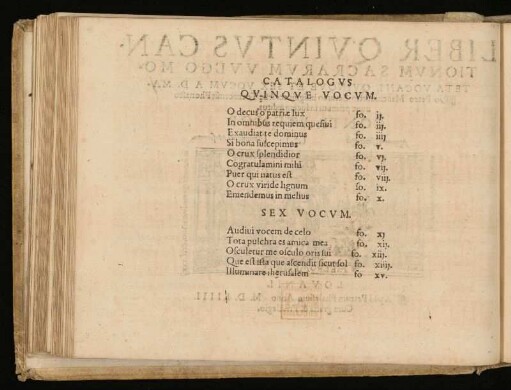 CATALOGVS
QVINQVE VOCVM.
O decus o patriæ lux fo. ij.
In omnibus requiem quesiui fo. iij.
Exaudiat te dominus fo. iiij
Si bona suscepimus fo. v.
O crux splendidior fo. vj.
Cogratulamini mihi fo. vij.
Puer qui natus est fo. viij.
O crux viride lignum fo. ix.
Emendemus in melius fo. x.
SEX VOCVM.
Audiui vocem de celo fo. xj
Tota pulchra es amica mea fo. xij.
Osculetur me osculo oris sui fo. xiij.
Que est ista que ascendit sicut sol fo. xiiij.
Illuminare iherusalem fo. xv.